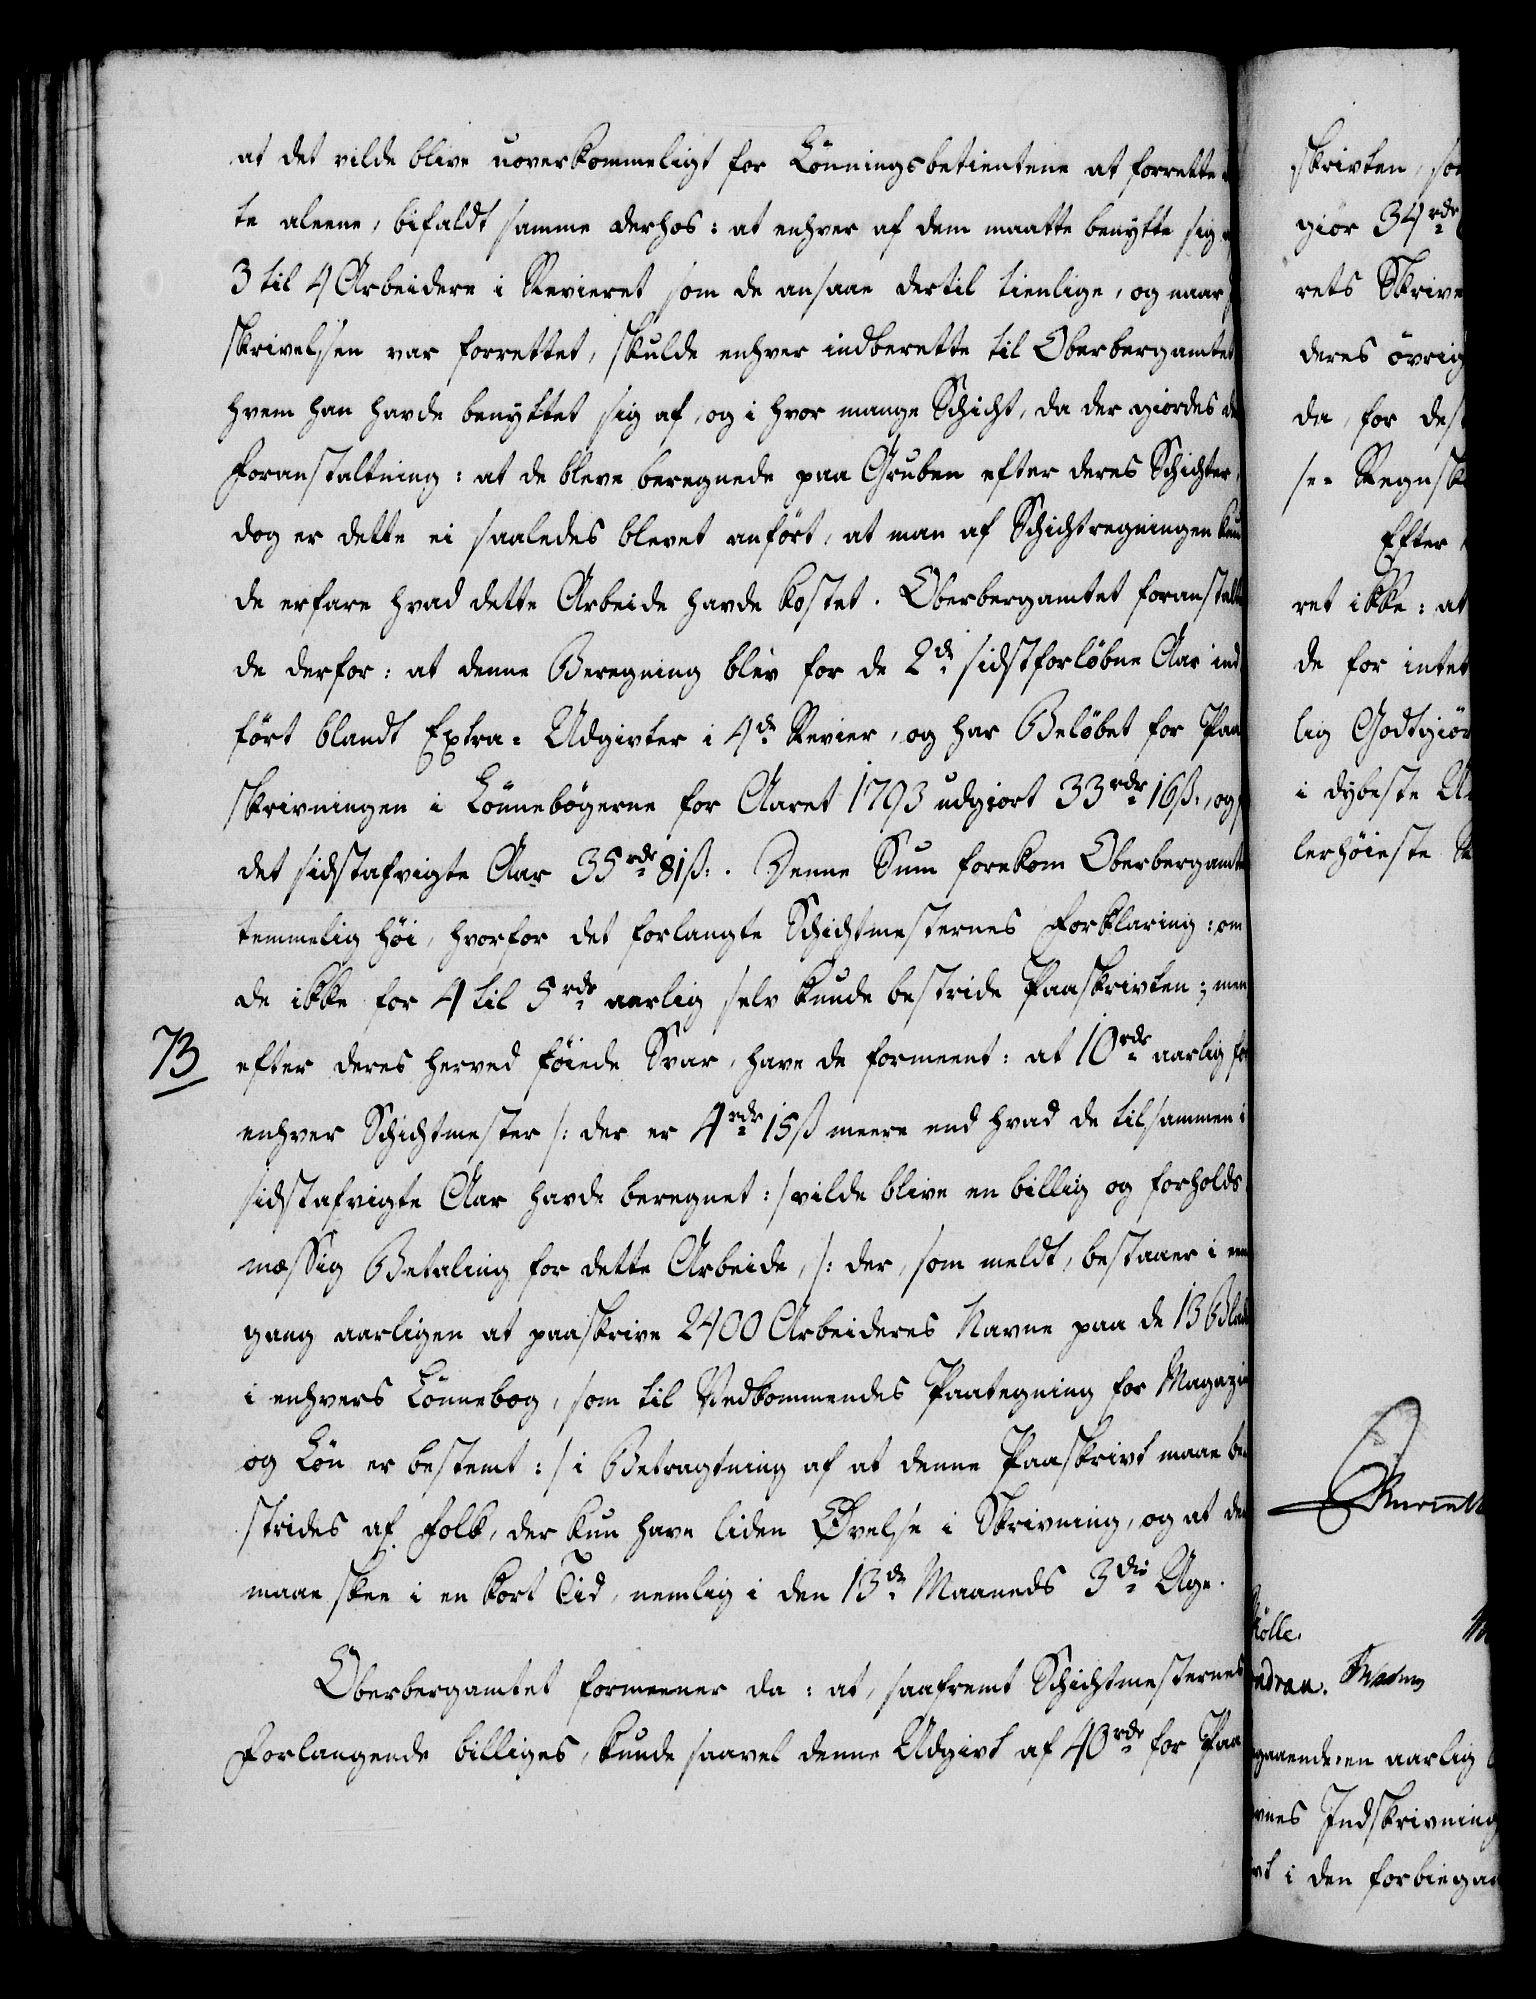 at det vilde blive uoverkommeligt for Lønningsbetientene at forrette
te aleene, bifaldt samme derhos: at enhver af dem maatte benytte sig
3 til 4 Arbeidere i Revieret som de ansaae dertil tienlige, og naar
skrivelsen var forrettet, skulde enhver indberette til Oberbergamtet
hvem han havde benyttet sig af, og i hvor mange Schicht, da der giordes
Foranstaltning: at de bleve beregnede paa Gruben efter deres Schichter,
dog er dette ei saaledes blevet anført, at man af Schichtregningen kun
de erfare hvad dette Arbeide havde kostet. Oberbergamtet foranstalte
de derfor: at denne Beregning blev for de 2de sidstforløbne Aar ind
ført blandt Extra- Udgivter i 4de Revier, og har Beløbet for Paa
skrivningen i Lønnebøgerne for Aaret 1793 udgiort 33 rdr 16 ß:, og
det sidstafvigte Aar 35 rdr 81 ß:. Denne Sum forekom Oberbergamte
temmelig høi, hvorfor det forlangte Schichtmesternes Forklaring: om
de ikke for 4 til 5 rdr aarlig selv kunde bestride Paaskrivten; men
73 efter deres herved føiede Svar, have de formeent: at 10 rdr aarlig for
enhver Schichtmester /: der er 4 rdr 15 ß meere end hvad de tilsammen i
sidstafvigte Aar havde beregnet :/ vilde blive en billig og forholds
mæssig Betaling for dette Arbeide, /: der, som meldt, bestaaer i een
gang aarligen at paaskrive 2400 Arbeideres Navne paa de 13 Blade
i enhvers Lønnebog, som til Vedkommendes Paategning for Magazin
og Løn er bestemt :/ i Betragtning af at denne Paaskrivt maae be
strides af Folk, der kun have liden Øvelse i Skrivning, og at den
maae skee i en kort Tid, nemlig i den 13de Maaneds 3die Uge.
Oberbergamtet formeener da: at, saafremt Schichtmesternes
Forlangende billiges, kunde saavel denne Udgivt af 40 rdr for Paa
skrivten, so
giør 34 rdr
rets Skrive
deres øvrig
de, for des
se- Regnsk
Efter
ret ikke: at
de for intet
lig Godtgiør
i dybeste U
lerhøieste
ølle.
adrau.
gaaende: en aarlig
rnes Indskrivning
vt i den forbiega